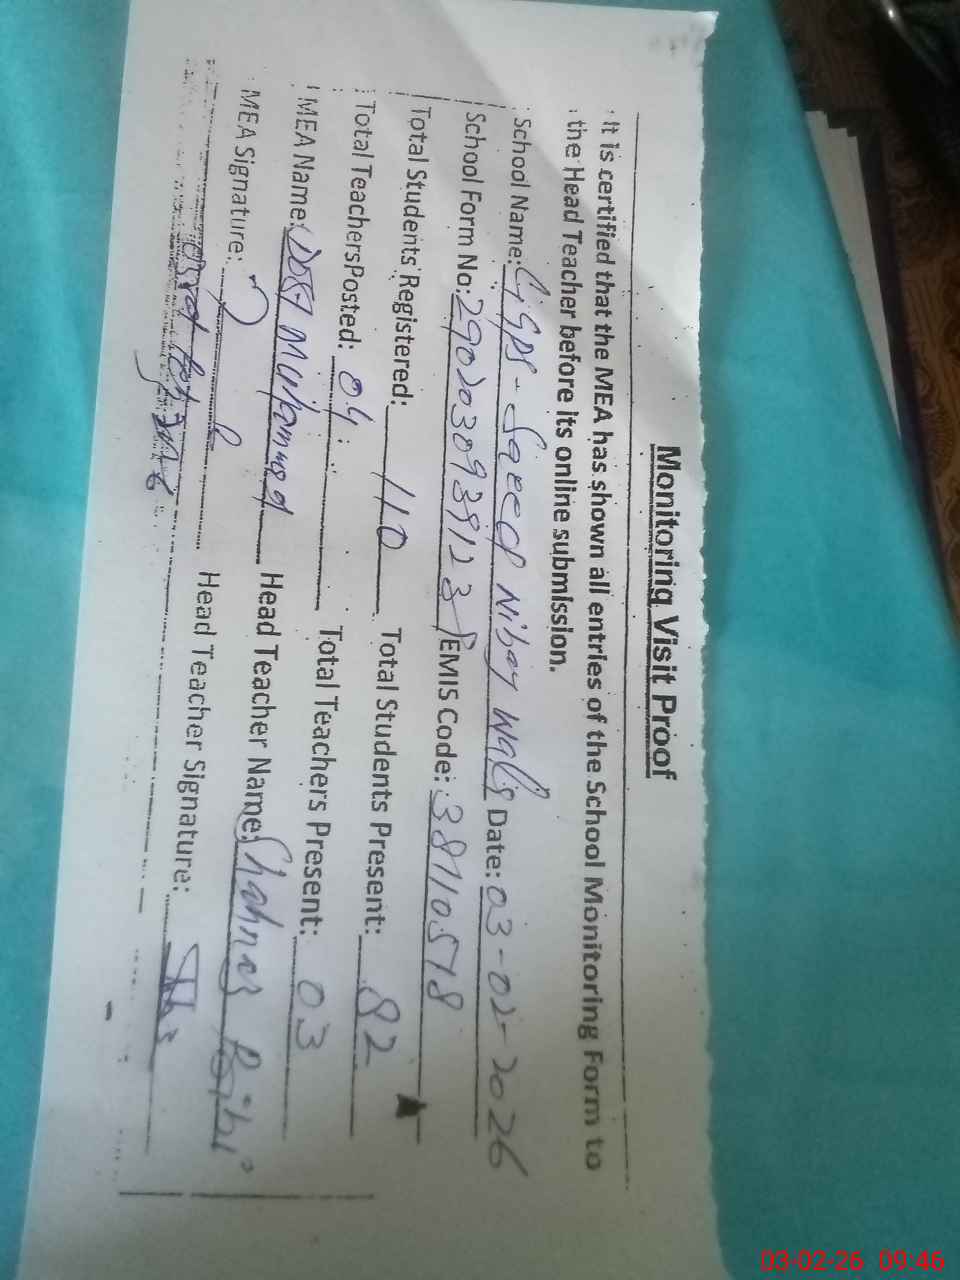 Monitoring Visit Proof
It is certified that the MEA has shown all entries of the School Monitoring Form to
the Head Teacher before its online submission.
School Name: GGPS - Saeed Nibgy Wali Date: 03-02-2026
School Form No: EMIS Code: 38110518
Total Students Registered: 110 Total Students Present: 82
Total TeachersPosted: 04 Total Teachers Present: 03
MEA Name: Dost Muhammad Head Teacher Name: Shahnaz Bibi
MEA Signature: Head Teacher Signature:
03-02-26 09:46